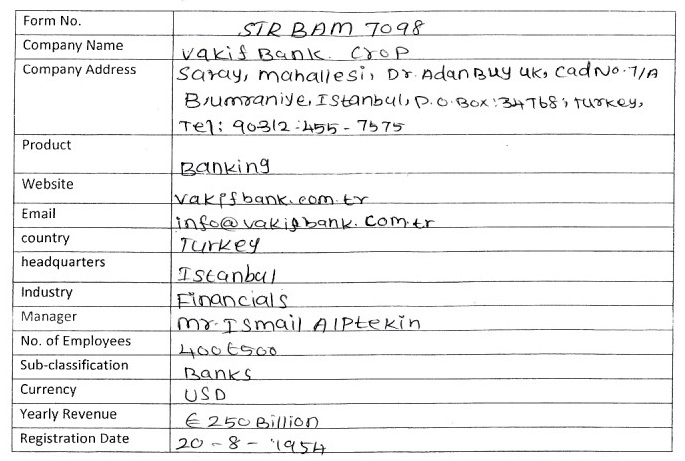 Form No. STR BAM 7098
Company Name Vakif Bank. Crop
Company Address Saray, mahallesi, Dr. Adan Buy uk, Cad No. 7/A
B,umraniye, Istanbul, P.O. Box: 34768, Turkey,
Tel: 90312-455-7575
Product Banking
Website vakifbank.com.tr
Email info@vakifbank.com.tr
country Turkey
headquarters Istanbul
Industry Financials
Manager Mr. Ismail Alptekin
No. of Employees 400t500
Sub-classification Banks
Currency USD
Yearly Revenue € 250 Billion
Registration Date 20-8-1954